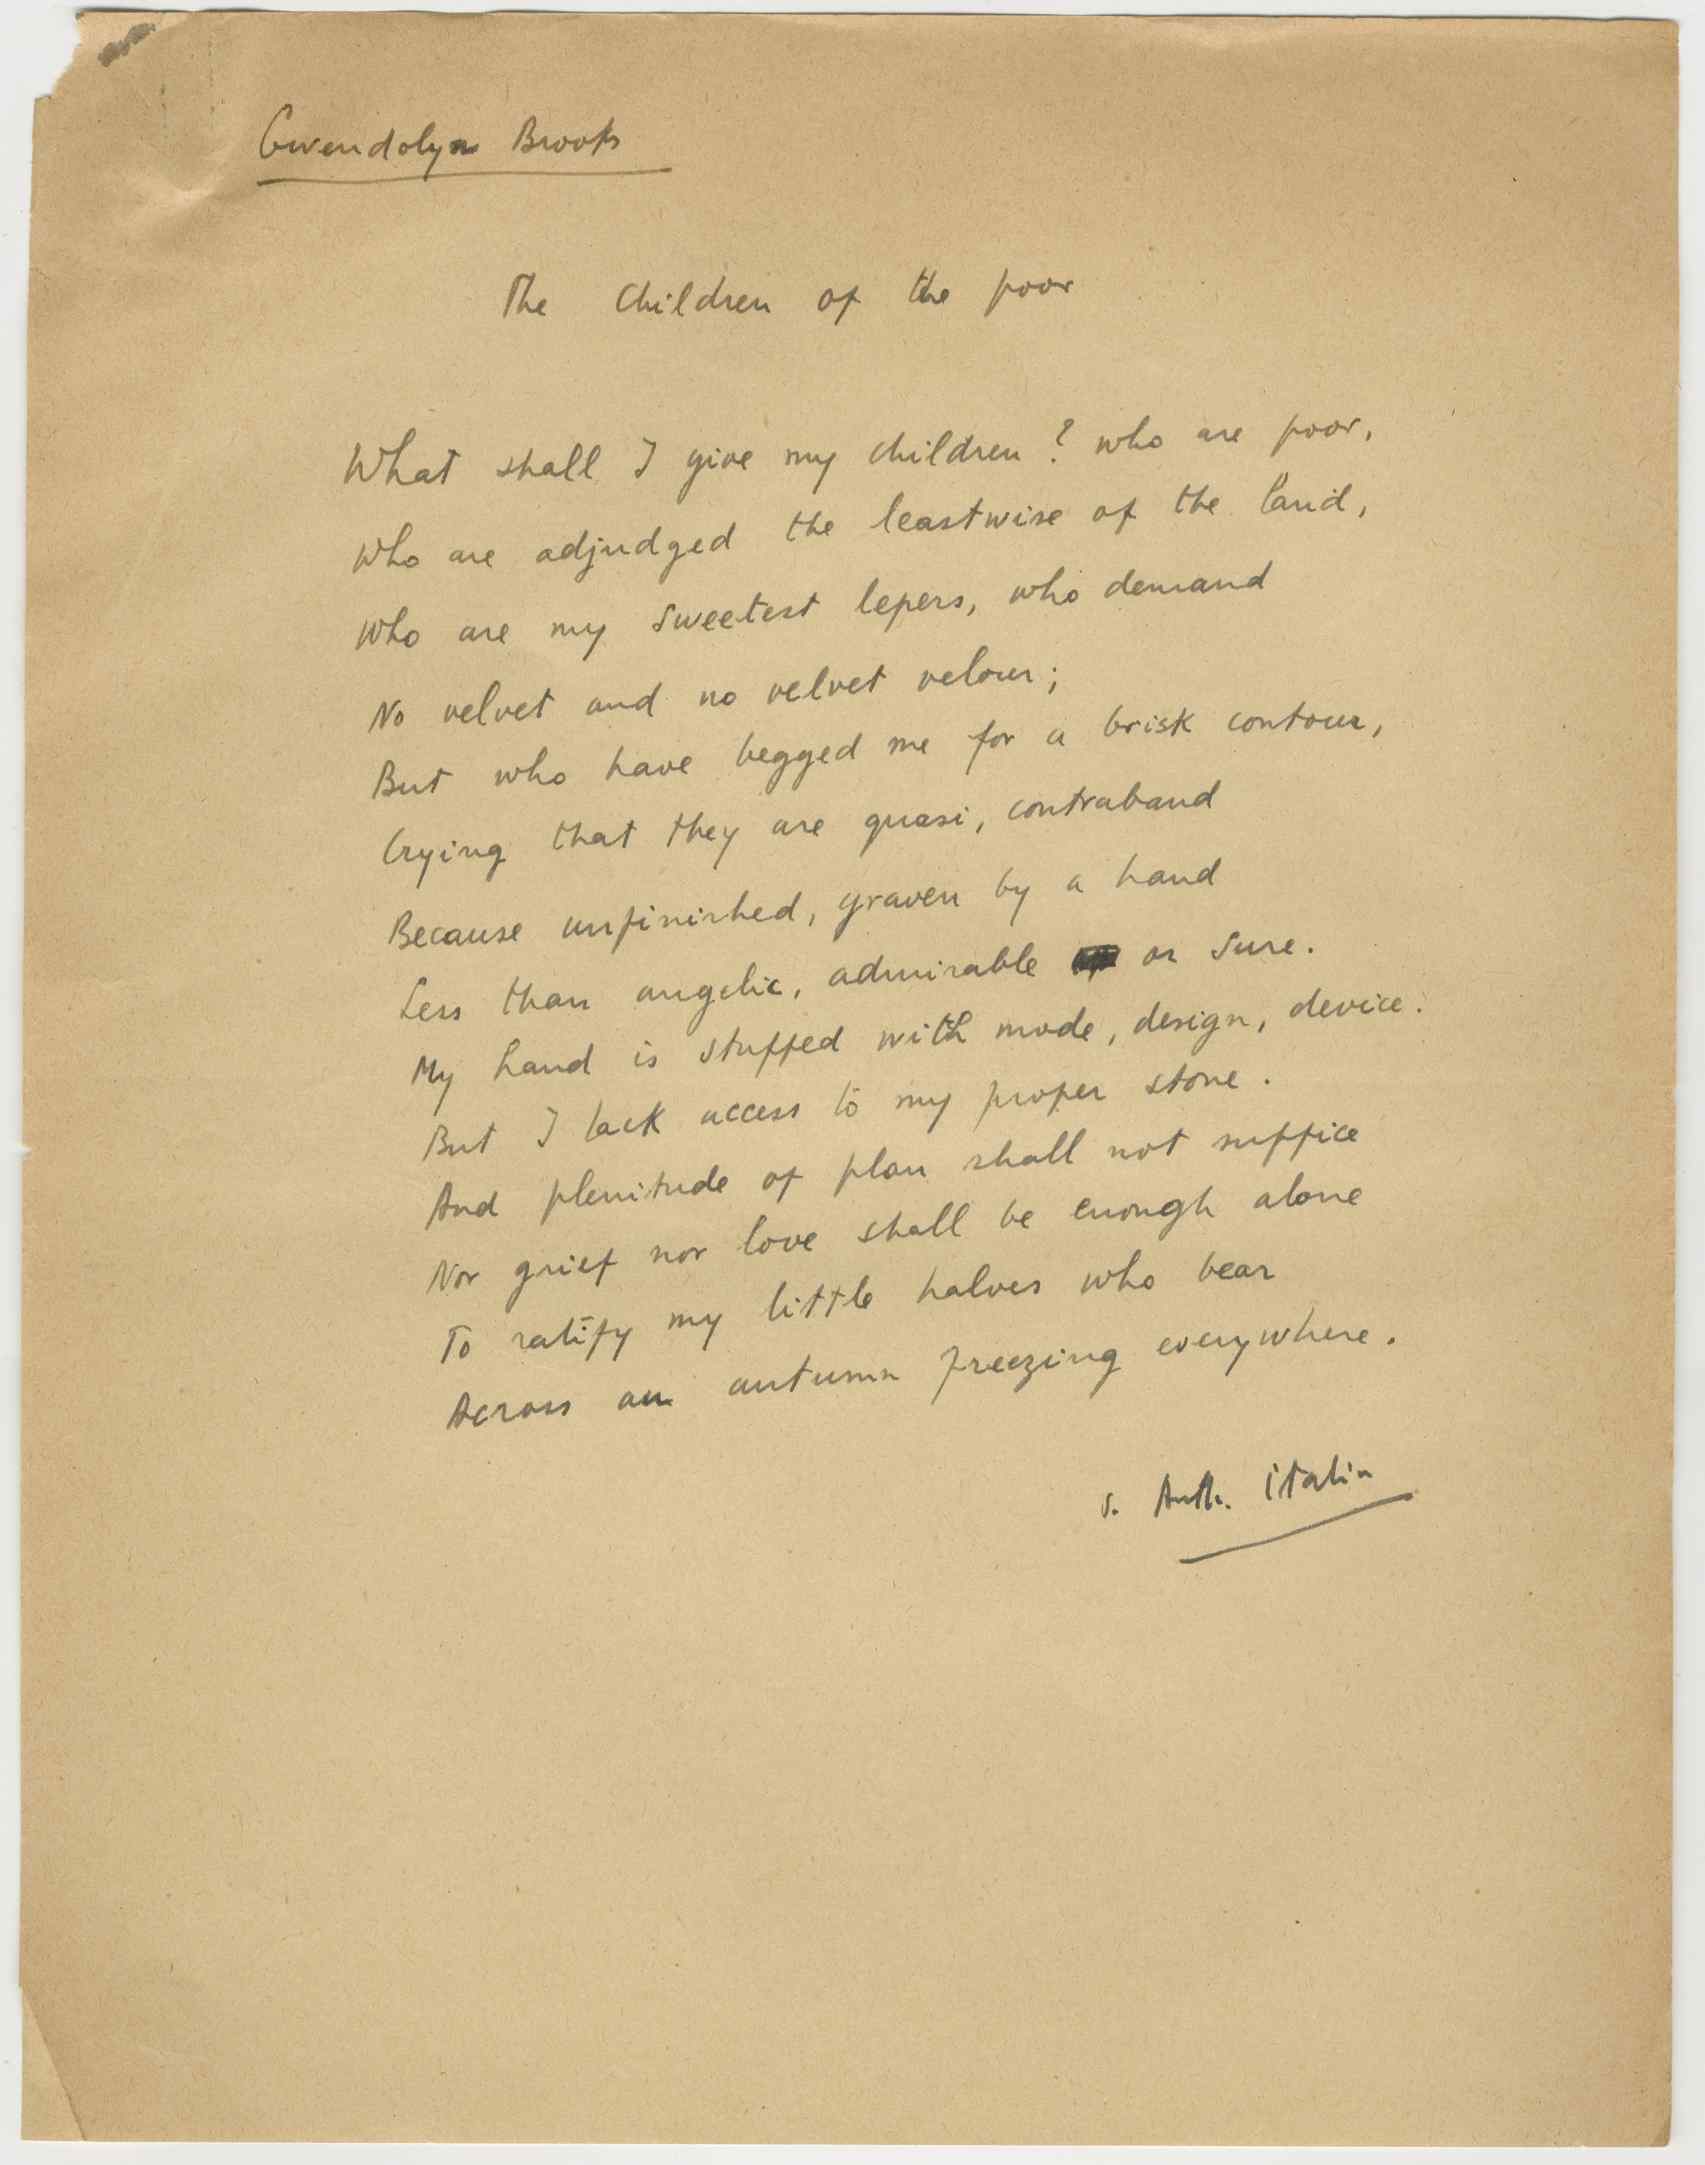 Gwendolyn Brooks
The Children of the poor
What shall I give my children? who are poor,
Who are adjudged the leastwise of the land,
Who are my sweetest lepers, who demand
No velvet and no velvet velour;
But who have begged me for a brisk contour,
Crying that they are quasi, contraband
Because unfinished, graven by a hand
Less than angelic, admirable or sure.
My hand is stuffed with mode, design, device.
But I lack access to my proper stone.
And plenitude of plan shall not suffice
Nor grief nor love shall be enough alone
To ratify my little halves who bear
Across an autumn freezing everywhere.
s. Anth.